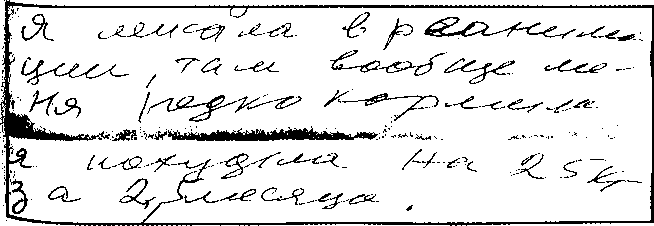 я лежала в реаними
ции, там вообще ме-
ня редко кормили
я похудела на 25 кг
за 2 месяца.